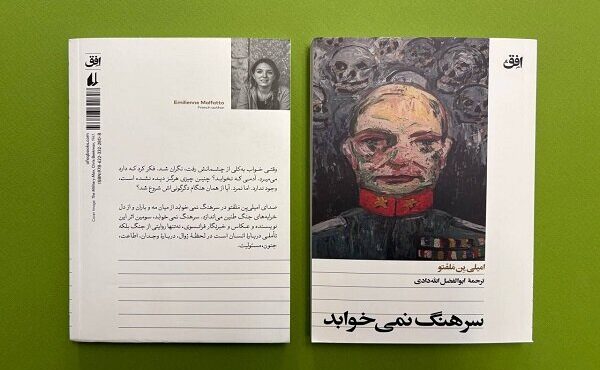 افق
Emilienne Malfatto
French author
وقتی خواب به‌کلی از چشمانش رفت، نگران شد. فکر کرد که دارد
می‌میرد. آدمی که نخوابد؟ چنین چیزی هرگز دیده نشده است،
وجود ندارد. اما نمرد. آیا از همان هنگام دگرگونی‌اش شروع شد؟
صدای امیلی‌ین ملفتو در سرهنگ نمی خوابد از میان مه و باران و از دل
خرابه‌های جنگ طنین می‌اندازد. سرهنگ نمی خوابد، سومین اثر این
نویسنده و عکاس و خبرنگار فرانسوی، نه‌تنها روایتی از جنگ بلکه
تأملی دربارهٔ انسان است در لحظهٔ زوال، دربارهٔ وجدان، اطاعت،
جنون، مسئولیت.
افق
امیلی ین ملفتو
ترجمهٔ ابوالفضل الله‌دادی
سرهنگ نمی خوابد